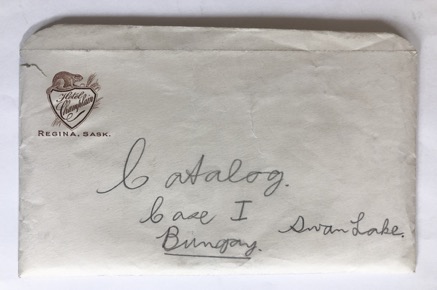 Hotel
Champlain
REGINA, SASK.
Catalog.
Case I
Bungay.
Swan Lake.